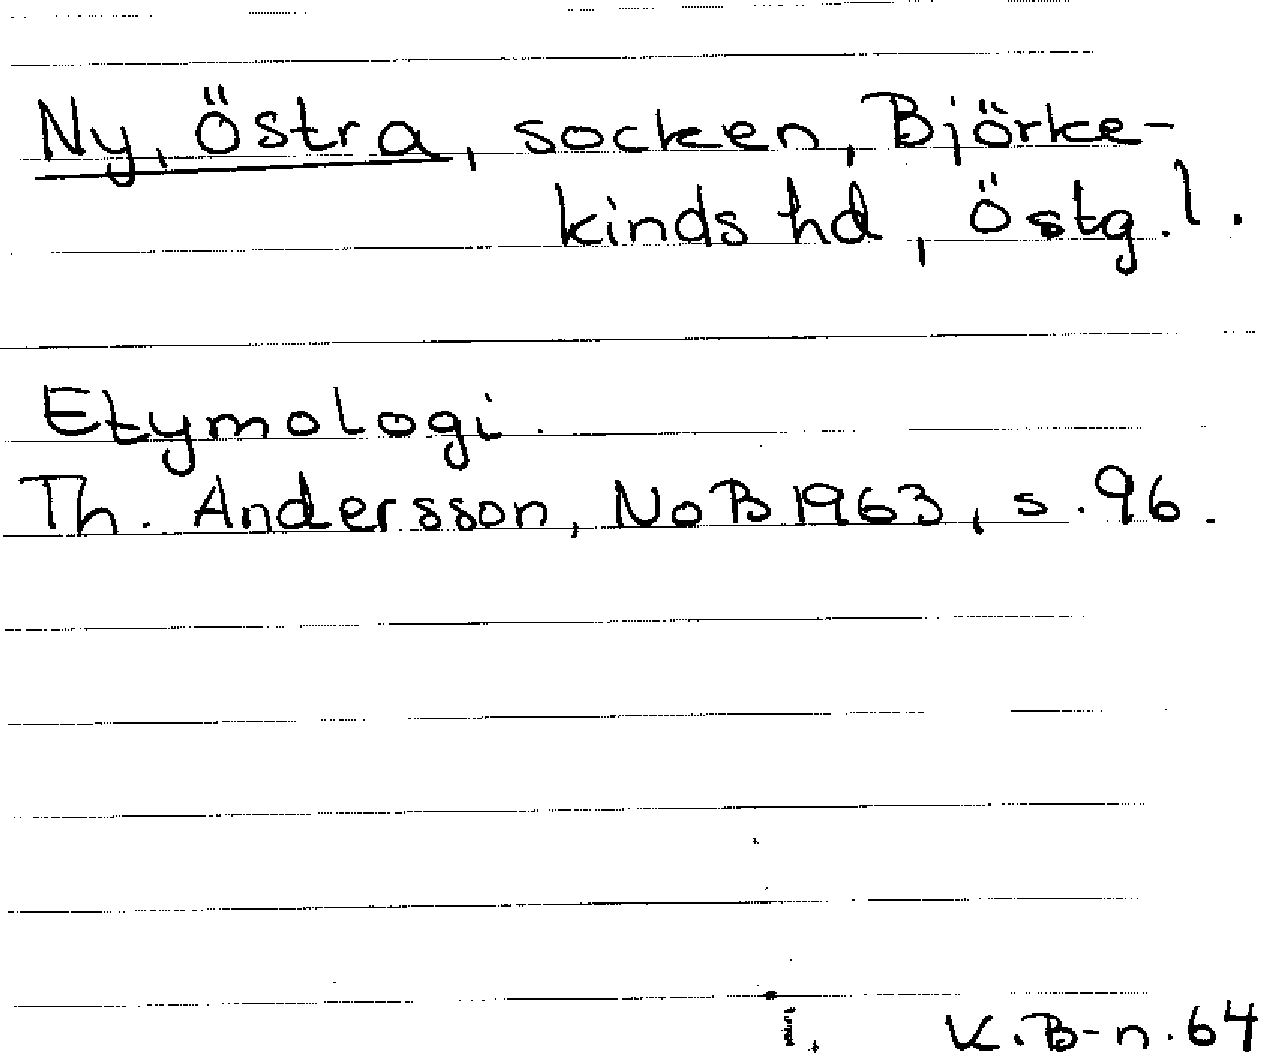 Ny, Östra, socken, Björke-
kinds hd, Östg. l.
Etymologi.
Th. Andersson, NoB 1963, s. 96.
K. B-n. 64